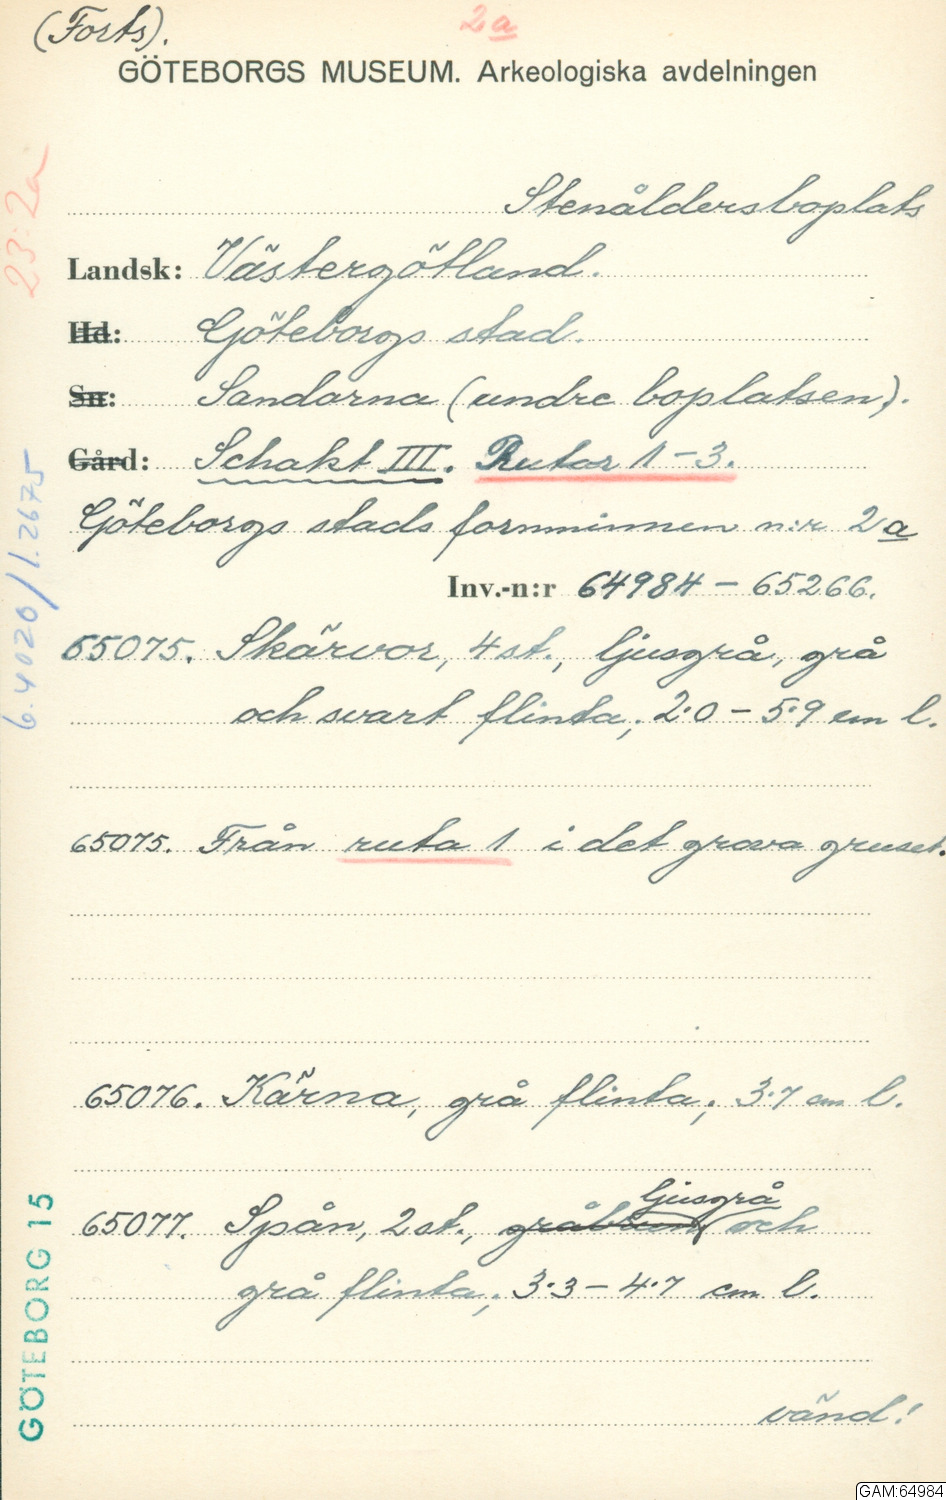 (Forts).
2a
GÖTEBORGS MUSEUM. Arkeologiska avdelningen
23:2a
Stenåldersboplats
Landsk: Västergötland.
Hd: Göteborgs stad.
Sn: Sandarna (undre boplatsen).
Gård: Schakt III. Rutor 1-3.
Göteborgs stads fornminnen n:r 2a
Inv.-n:r 64984-65266.
6.4020/1.2675
65075. Skärvor, 4 st., ljusgrå, grå
och svart flinta; 2·0-5·9 cm l.
65075. Från ruta 1 i det grova gruset.
65076. Kärna, grå flinta; 3·7 cm l.
ljusgrå
65077. Spån, 2 st., gråbrun och
grå flinta; 3·3-4·7 cm l.
GÖTEBORG 15
vänd!
GAM:64984